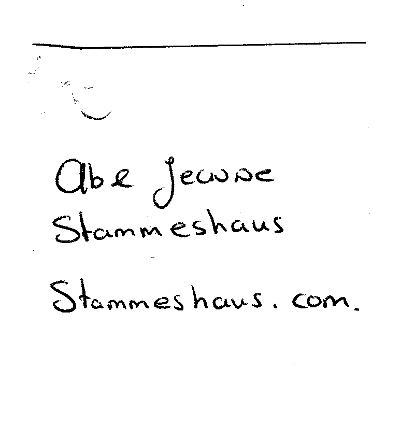 Abe Jewne
Stammeshaus
Stammeshaus.com.